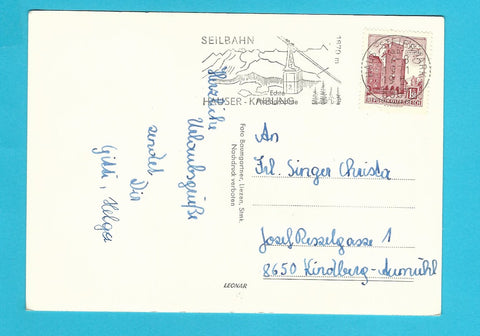 SEILBAHN
1870 m
Echte
HAUSER - KAIBLING
STEIERMARK
REPUBLIK ÖSTERREICH
Herzliche
Urlaubsgrüße
sendet Dir
Gitti, Helga
Foto Baumgartner, Liezen, Stmk.
Nachdruck verboten
LEONAR
An
Frl. Singer Christa
Josef Resselgasse 1
8650 Kindberg-Aumühl